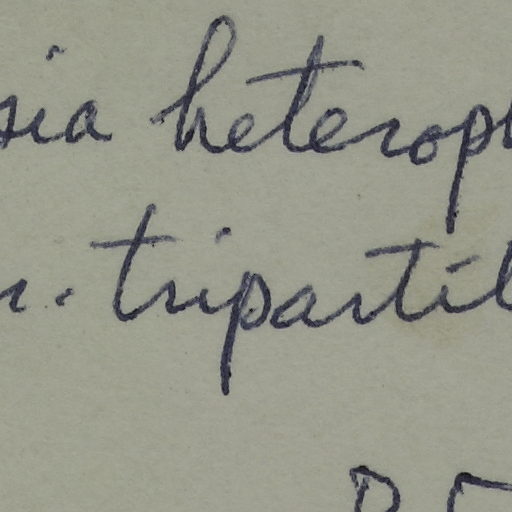 sia heteroph
r. tripartit